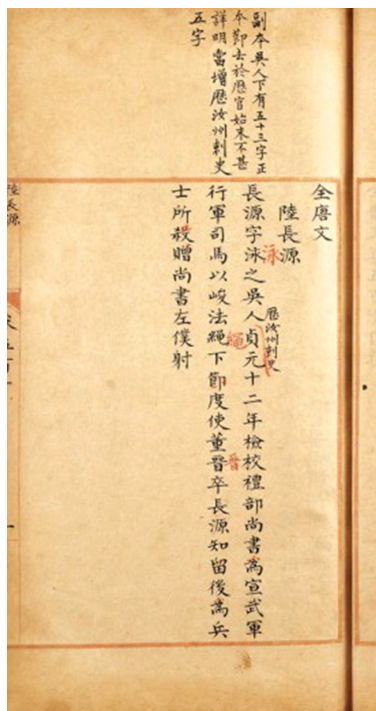 副本吳人下有五十三字正
本節去於歷官始末不甚
詳明當增歷汝州刺史
五字
全唐文
陸長源
泳
長源字泳之吳人貞元十二年檢校禮部尚書為宣武軍
歷汝州刺史
繩
晉
行軍司馬以峻法繩下節度使董晉卒長源知留後為兵
士所殺贈尚書左僕射
陸長源